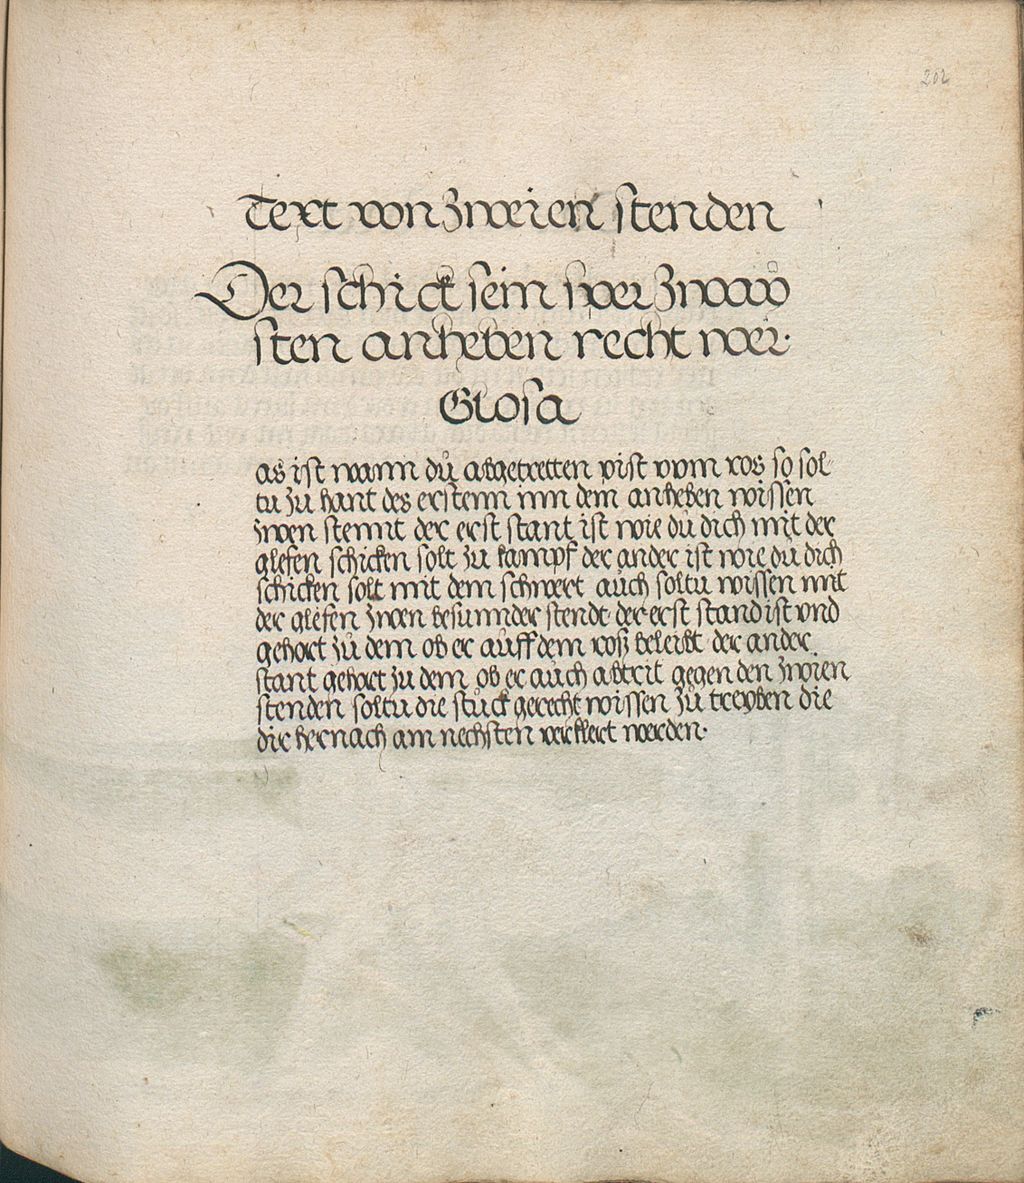 202
Text von zweien stenden
Der schick sein sper zwaÿ
sten anheben recht wer·
Glosa
as ist wann dů abgetretten pist vom ros so sol
tu zu hant des erstenn inn dem anheben wissen
zwen stennt der erst stant ist wie du dich mit der
glefen schicken solt zu kampf der ander ist wie du dich
schicken solt mit dem schwert aůch soltu wissen mit
der glefen zwen besunnder stende der erst stand ist vnd
gehort zů dem ob er aůff dem roß beleibt der ander
stant gehort zu dem ob er aůch abtrit gegen den zwien
stenden soltu die stůck gerecht wissen zů treyben die
dir hernach am nechsten verklert werden·